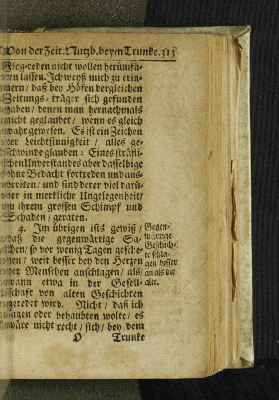 Von der Zeit. Nutzb. beym Trunke. 313
Flog-reden nicht wollen herümfü-
ren lassen. Ich weyß mich zu erin-
nern / daß bey Höfen dergleichen
Zeitungs-träger sich gefunden
haben / denen man hernachmals
nicht geglaubet / wenn es gleich
wahr gewesen. Es ist ein Zeichen
der Leichtsinnigkeit / alles ge-
schwinde glauben: Eines sträfli-
chen Unverstandes aber dasselbige
ohne Bedacht fortreden und aus-
breiten / und sind derer viel darü-
ber in merkliche Ungelegenheit
zu ihrem grossen Schimpf und
Schaden / geraten.
4. Im übrigen ists gewiß /
daß die gegenwärtige Sa-
chen / so vor wenig Tagen gesche-
hen / weit besser bey den Herzen
der Menschen anschlagen / als /
wann etwa in der Gesell-
schaft von alten Geschichten
geredet wird. Nicht / daß ich
sagen oder behaubten wolte / es
wäre nicht recht / sich / bey dem
Gegen-
wärtige
Geschich-
te schla-
gen besser
an als die
alte.
O Trunke